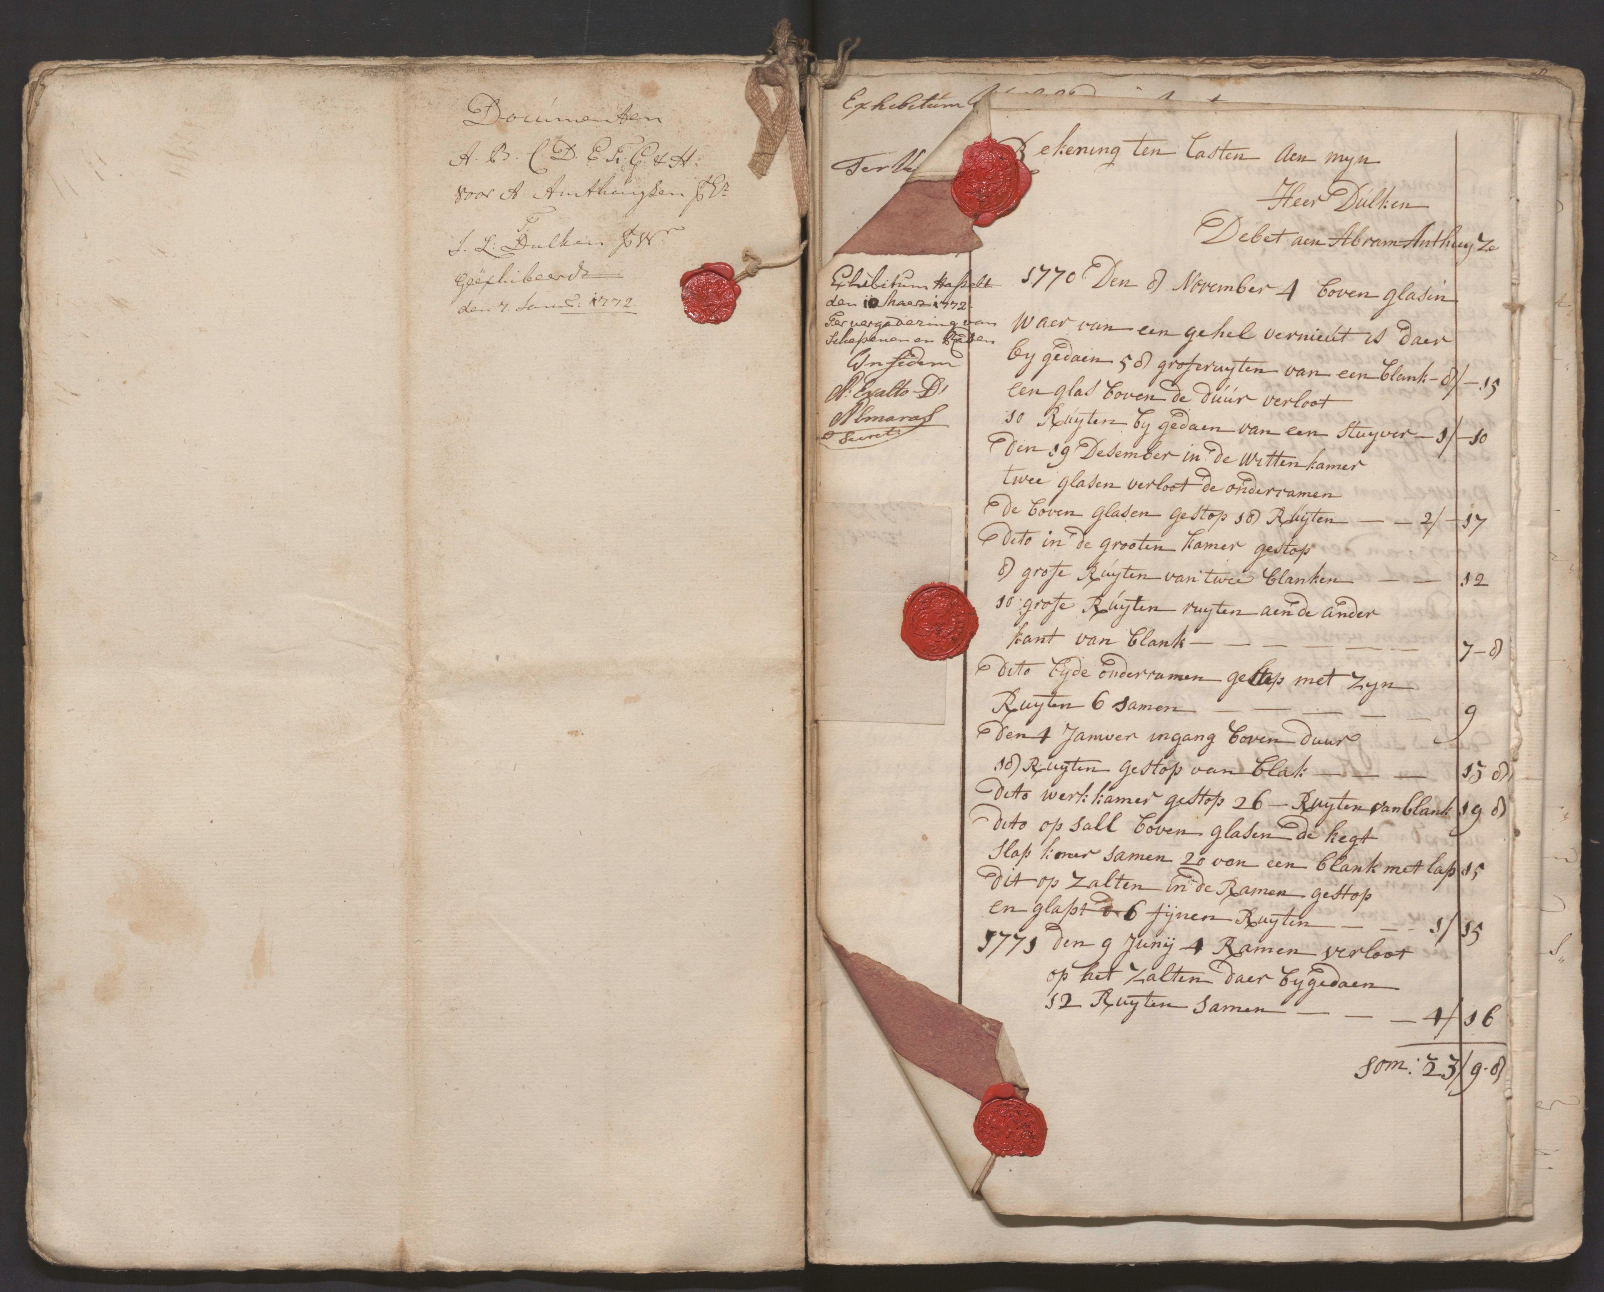 Documenten
A. B. C D. E F. G & H:
voor A Anthonijsen
J. L: Dulken
Geëxhibeerd
den 7 Janu: 1772
Exhibitum
Ter
Exhibitum Hasselt
den 10 Maerz 1772
Ter vergadering van
Schepenen en Raden
In fidem
Exalto D'
Almaras
Secrets
Rekening ten Lasten Aen myn
Heer Dulken
Debet aen Abram Anthuyze
1770 Den 8 November 4 boven glasin
Waer van een gehel vernieut is daer
by gedaen 58 grose ruyten van een blank - 8/-15
een glas boven de duur verloot
10 Ruyten by gedaen van een stuyver - 1/-10
Den 19 Desember in de Witten kamer
twee glasen verloot de onderramen
De boven glasen gestop 18 Ruyten - - 2/-17
Dito in de grooten kamer gestop
8 grose Ruyten van twee blanken - - 12
10 grose Ruyten ruyten aen de ander
kant van blank - - - - - - 7-8
Dito byde onderramen gestop met zyn
Ruyten 6 samen - - - - - 9
Den 4 Janwer ingang boven duur
18 Ruyten gestop van blak - - - 13 8
Dito werkkamer gestop 26 - Ruyten van blank 19 8
Dito op sall boven glasen de kegt
slap kmer samen 20 van een blank met lap 15
Dit op Zalten in de Ramen gestop
en glapt 6 fijnen Ruyten - - - 1/15
1771 den 9 Junij 4 Ramen verloot
op het Zalten daer bygedaen
12 Ruyten samen - - - 4/16
som: 23/9-8